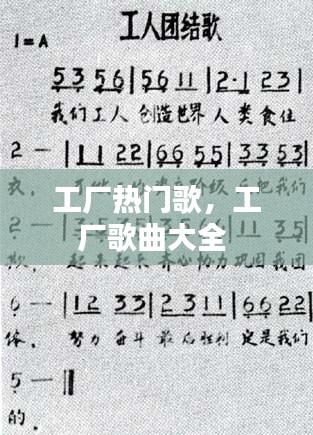 工人团结歌
1=A
53 56 | 56 11 | 2·1 23 |
我们工人 创造世界 人类食住
2 — | 11 22 | 66 55 |
衣，
工厂热门歌，工
厂歌曲大全
欺。 起来起来 齐心协力 巩固我团
6 — | 12 33 | 23 11 | 66 22 |
体， 努力奋斗 最后胜利 定是我们
5 — ‖
的．